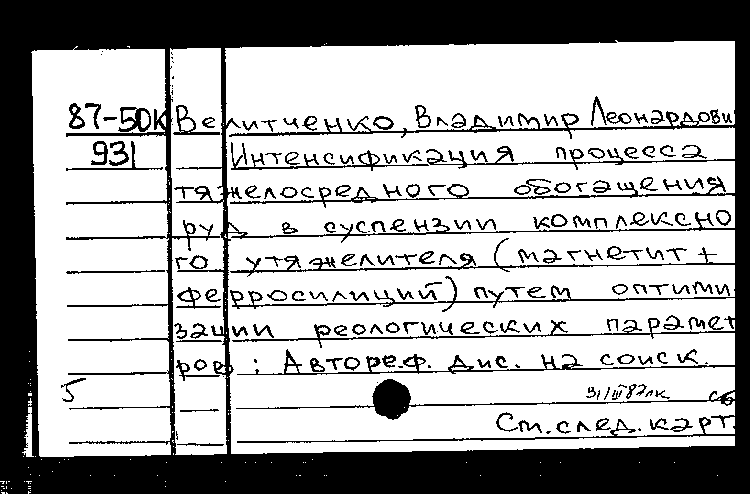 87-50К Велитченко, Владимир Леонардови
931 Интенсификация процесса
тяжелосредного обогащения
руд в суспензии комплексно
го утяжелителя (магнетит +
ферросилиций) путем оптими
зации реологических парамет
ров : Автореф. дис. на соиск.
5
Сб
См. след. карт.